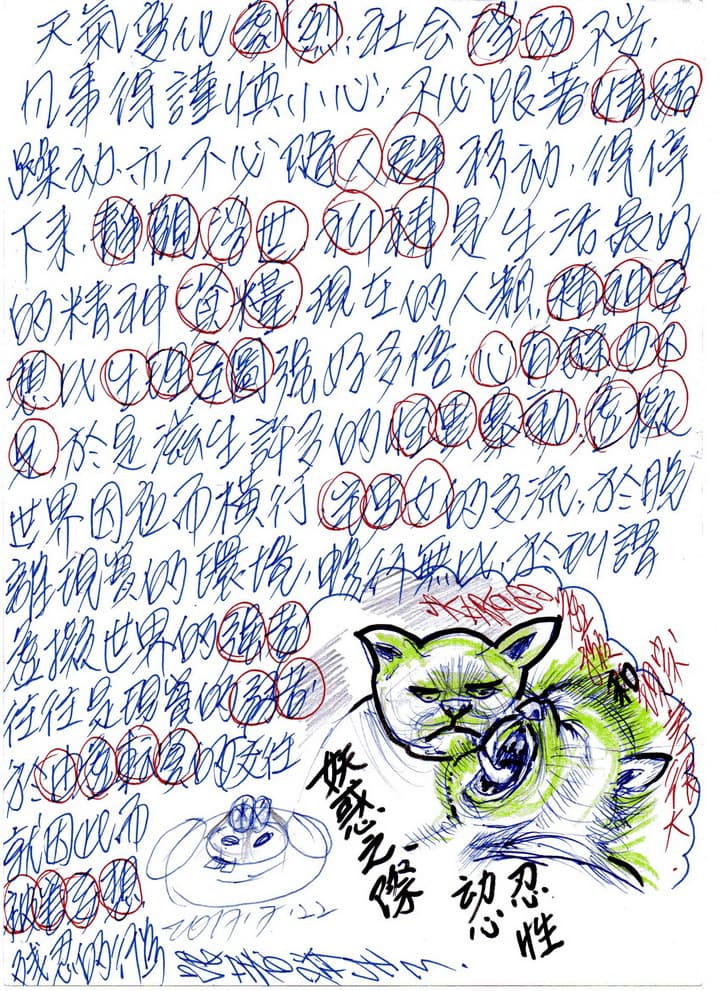 天氣變化劇烈,社会浮动不岂,
凡事得謹慎小心;不必跟著情緒
躁动,亦不必隨人群移动,得停
下來,靜觀浮世,
是生活最好
的精神資糧,現在的人類,精神妄
想以生理妄圖強好多倍;心有餘力不
足,於是滋生許多的怪異暴動;虛擬
世界因此而橫行,
男女的交流,於脫
離現實的環境,暢行無比,於所謂
虛擬世界的強者
往往是現實的弱者,
於由虛轉實的交往
就因此而
妄想,
殘忍的行為
2017.7.22
和
很大
妖惑之際
动心忍性